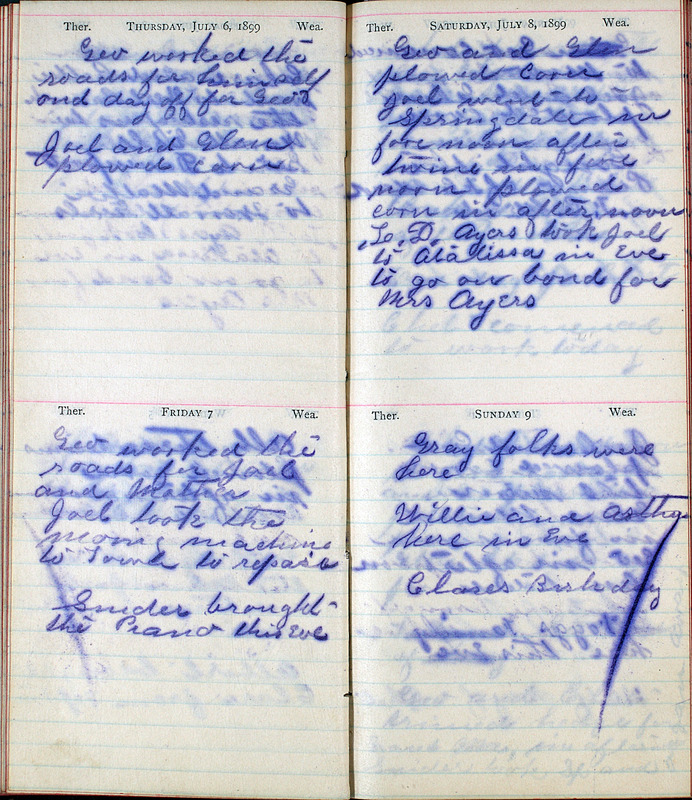 Ther. THURSDAY, JULY 6, 1899 Wea.
Geo worked the
roads for himself
and day off for Geo
Joel and Glen
plowed corn
Ther. FRIDAY 7 Wea.
Geo worked the
roads for Joel
and Mother
Joel took the
moing machine
to Town to repair
Snider brought
the Piano this Eve
Ther. SATURDAY, JULY 8, 1899 Wea.
Geo and Glen
plowed Corn
Joel went to
Springdale in
fore noon after
twine in fore
noon plowed
corn in after noon
L. D. Ayers took Joel
to Atalissa in Eve
to go on bond for
Mrs Ayers
to work today
Ther. SUNDAY 9 Wea.
Gray folks were
here
Willie and
here in Eve
Birthday